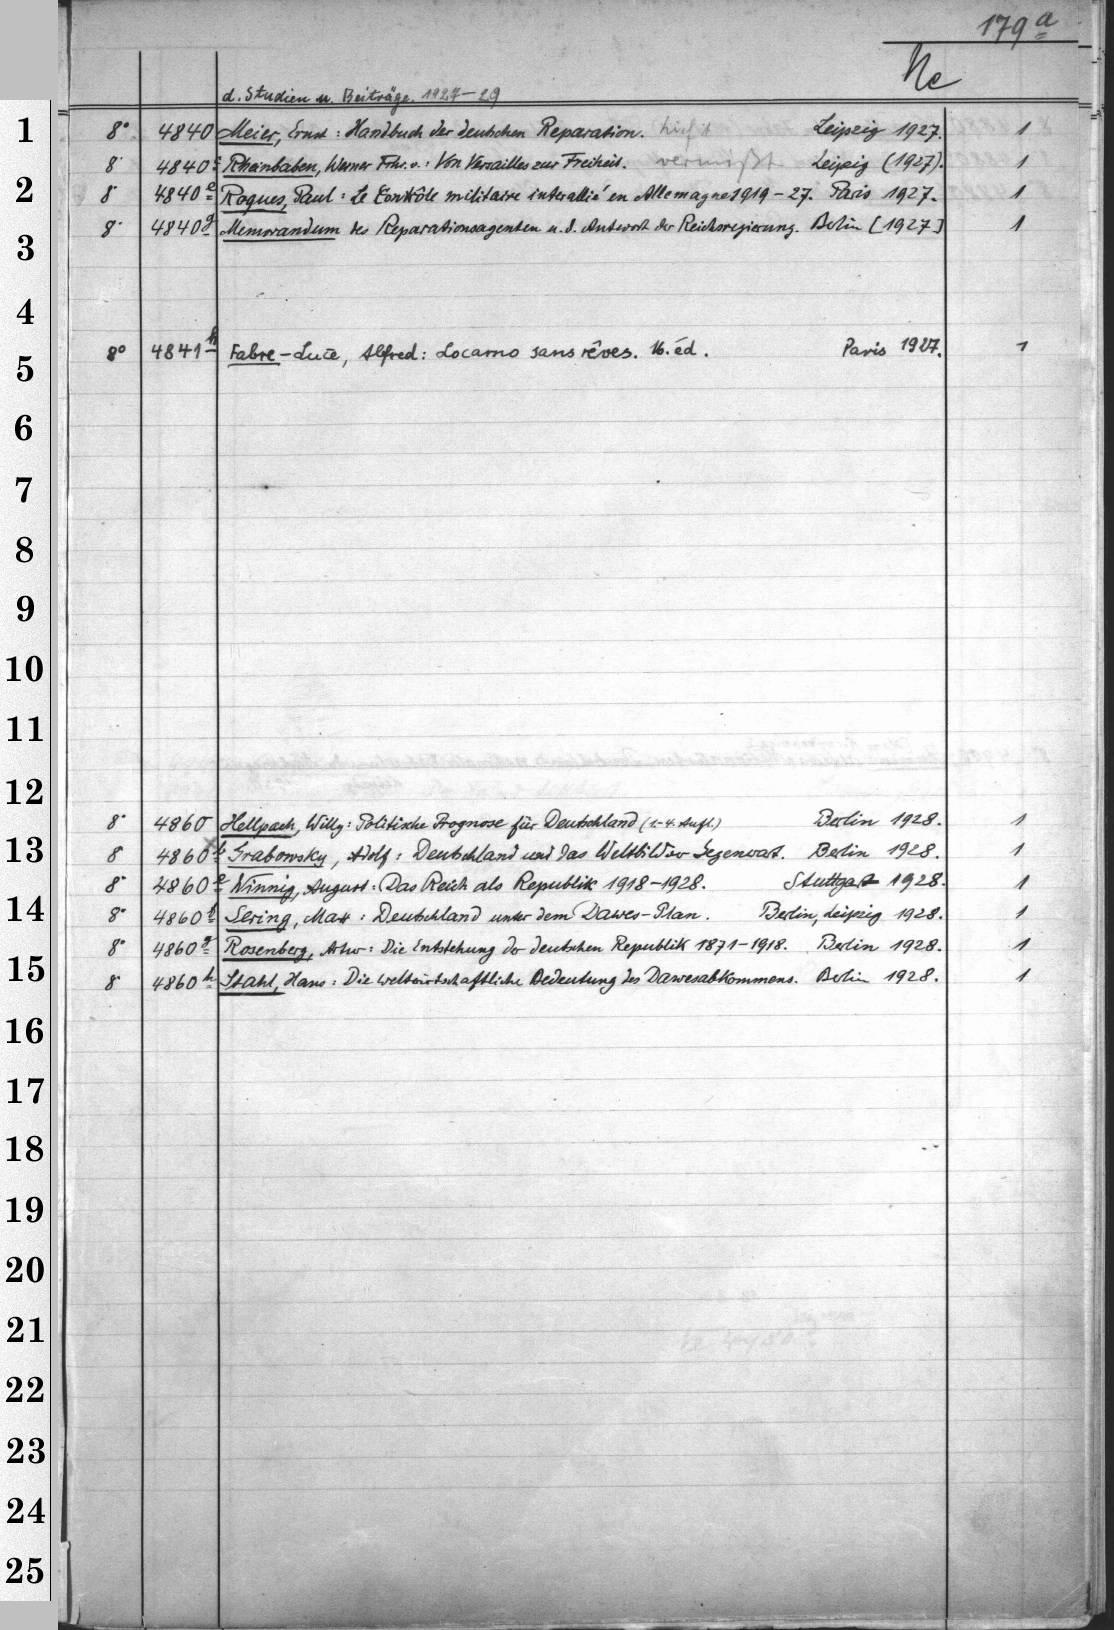 179 a
Ne
d. Studien u. Beiträge. 1927-29
1
8° 4840 Meier, Ernst: Handbuch der deutschen Reparation. Leipzig 1927. 1
8° 4840 c Rheinbaben, Werner Frhr. v.: Von Versailles zur Freiheit. vermißt Leipzig (1927). 1
2
8° 4840 e Roques, Paul: Le Contrôle militaire interallié en Allemagne 1919-27. Paris 1927. 1
8° 4840 g Memorandum des Reparationsagenten u. d. Antwort der Reichsregierung. Berlin [1927] 1
3
4
8° 4841 h Fabre-Luce, Alfred: Locarno sans rêves. 16. éd. Paris 1927. 1
5
6
7
8
9
10
11
12
8° 4860 Hellpach, Willy: Politische Prognose für Deutschland (1.-4. Aufl.) Berlin 1928. 1
13
8° 4860 b Grabowsky, Adolf: Deutschland und das Weltbild der Gegenwart. Berlin 1928. 1
8° 4860 e Winnig, August: Das Reich als Republik 1918-1928. Stuttgart 1928. 1
14
8° 4860 f Sering, Max: Deutschland unter dem Dawes-Plan. Berlin, Leipzig 1928. 1
8° 4860 g Rosenberg, Artur: Die Entstehung der deutschen Republik 1871-1918. Berlin 1928. 1
15
8° 4860 h Stahl, Hans: Die weltwirtschaftliche Bedeutung des Dawesabkommens. Berlin 1928. 1
16
17
18
19
20
21
22
23
24
25